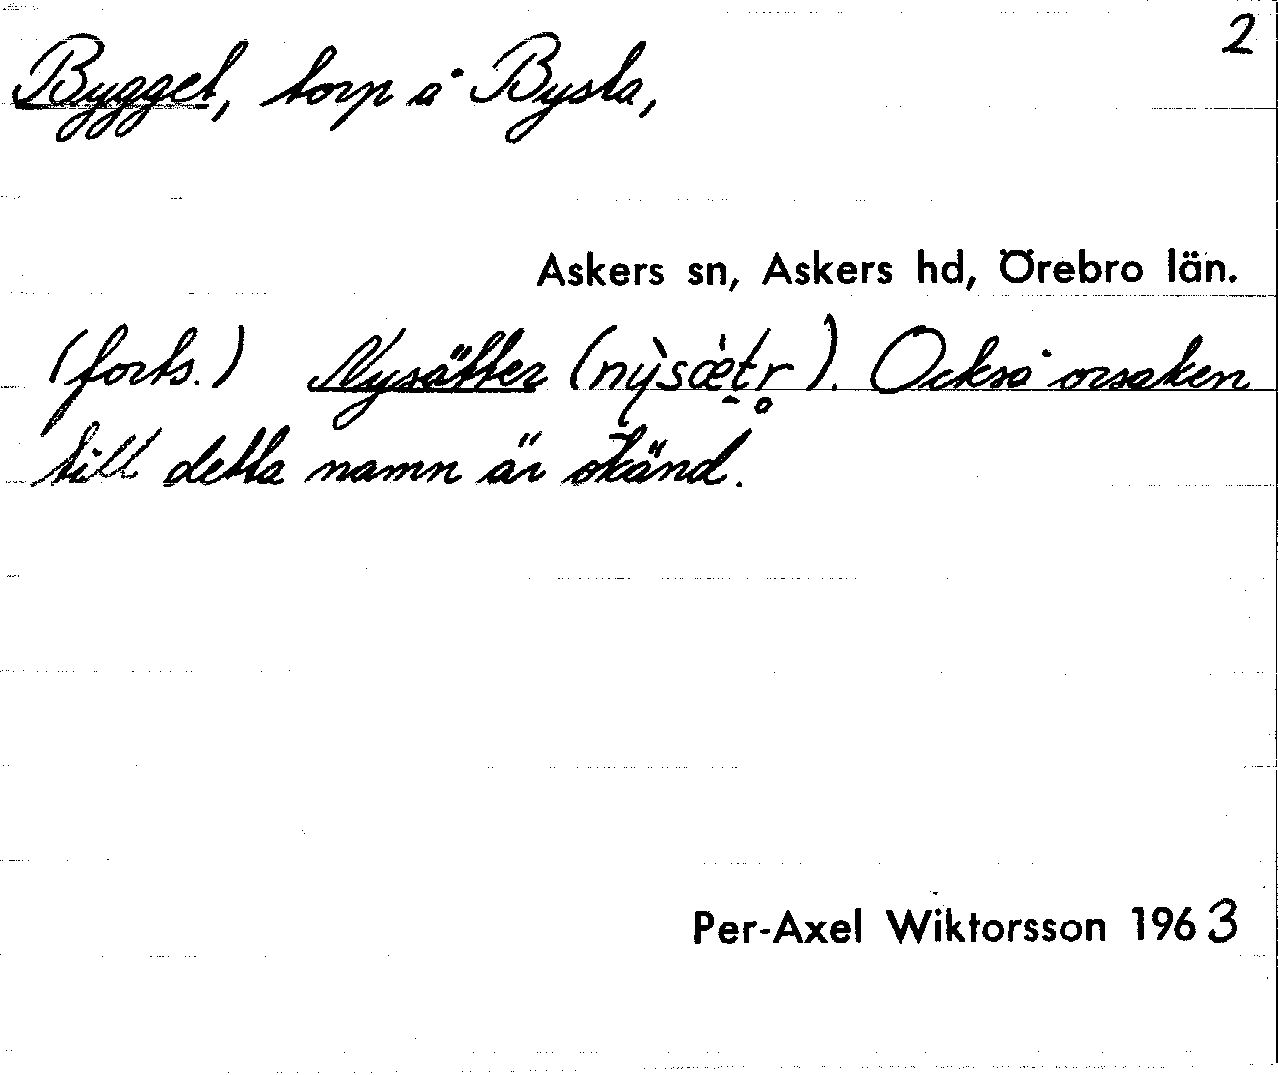 2
Bygget, torp å Bysta,
Askers sn, Askers hd, Örebro län.
(forts.) Nysätter (nỳsæ̀tr̥). Också orsaken
till detta namn är okänd.
Per-Axel Wiktorsson 1963